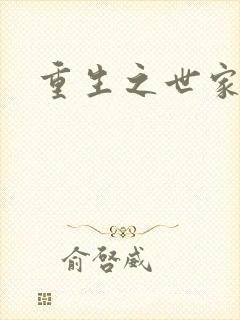 重生之世家
俞啓威